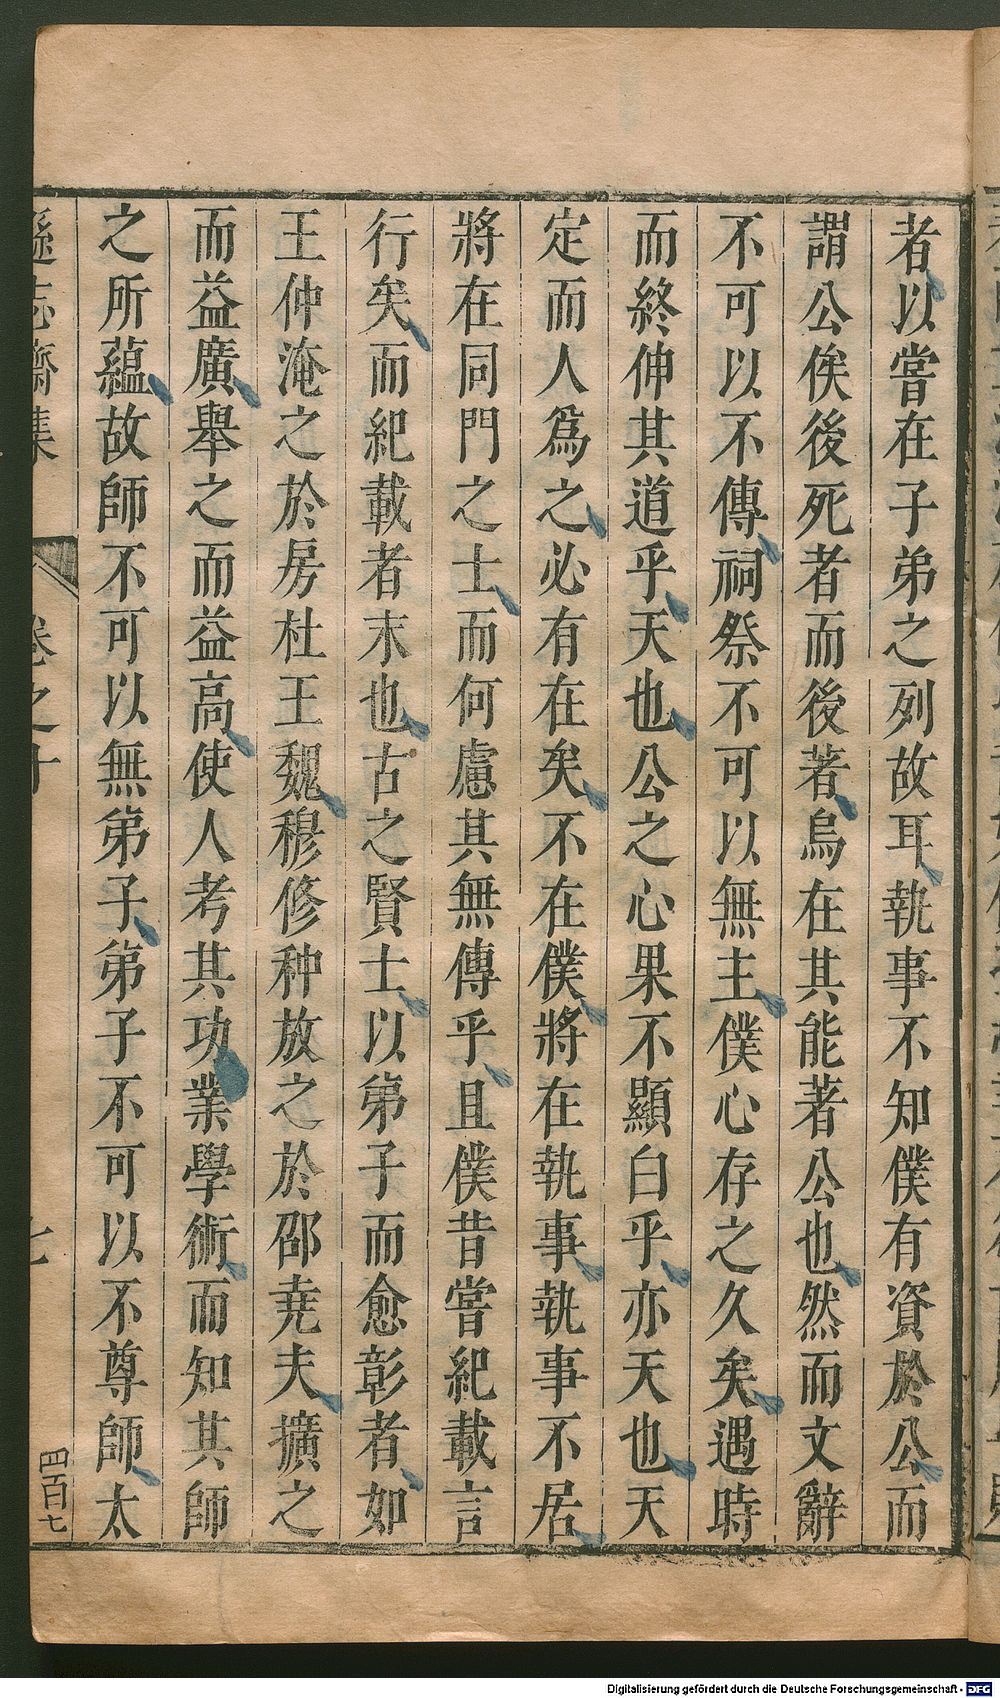 者以嘗在子弟之列故耳執事不知僕有資於公而
謂公俟後死者而後著烏在其能著公也然而文辭
不可以不傳祠祭不可以無主僕心存之久矣遇時
而終伸其道乎天也公之心果不顯白乎亦天也天
定而人爲之必有在矣不在僕將在執事執事不居
將在同門之士而何慮其無傳乎且僕昔嘗紀載言
行矣而紀載者末也古之賢士以弟子而愈彰者如
王仲淹之於房杜王魏穆修种放之於邵堯夫擴之
而益廣舉之而益高使人考其功業學術而知其師
之所蘊故師不可以無弟子弟子不可以不尊師太
遜志齋集 卷之十 七
四百七
Digitalisierung gefördert durch die Deutsche Forschungsgemeinschaft - DFG